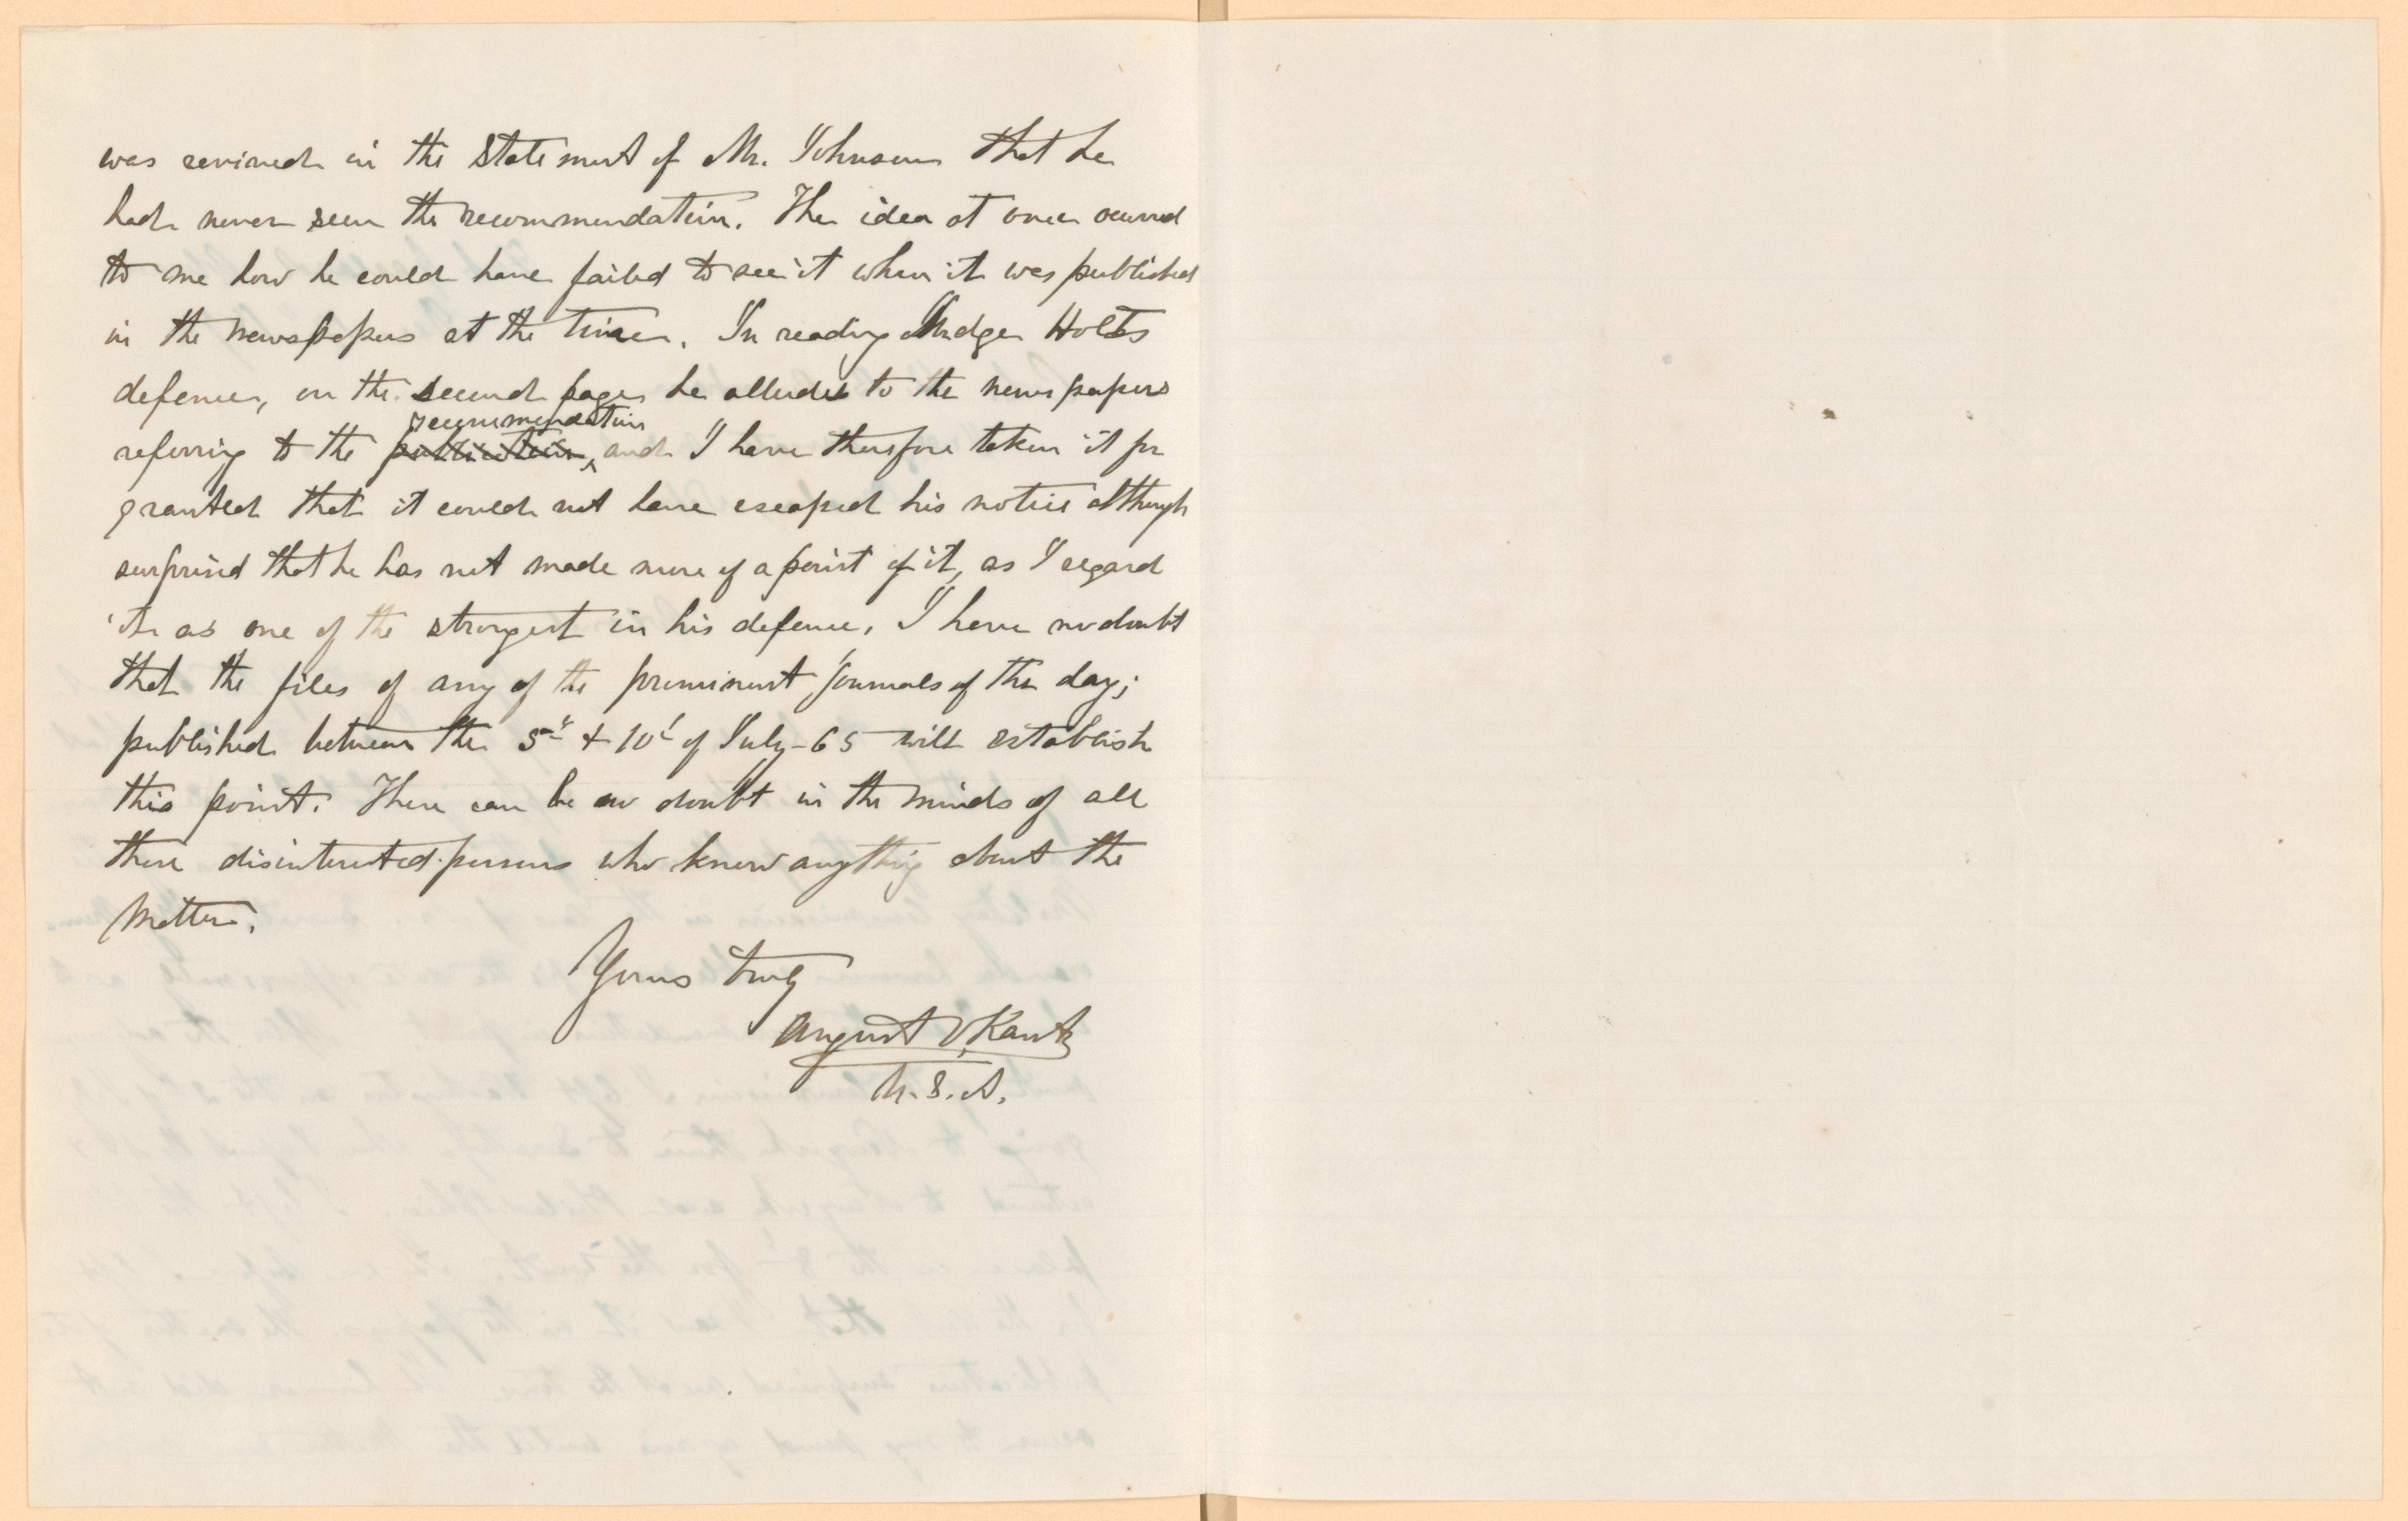 was revived in the statement of Mr. Johnson that he
had never seen the recommendation. The idea at once occurred
to me how he could have failed to see it when it was published
in the newspapers at the time. In reading Judge Holts
defence, on the second page he alludes to the newspapers
recommendation
referring to the publication, and I have therefore taken it for
granted that it could not have escaped his notice although
surprised that he has not made more of a point of it, as I regard
it as one of the strongest in his defence. I have no doubt
that the files of any of the prominent journals of the day;
published between the 5th & 10th of July-65 will establish
this point. There can be no doubt in the minds of all
those disinterested persons who know anything about the
matter.
Yours truly
August V. Kautz
U.S.A.